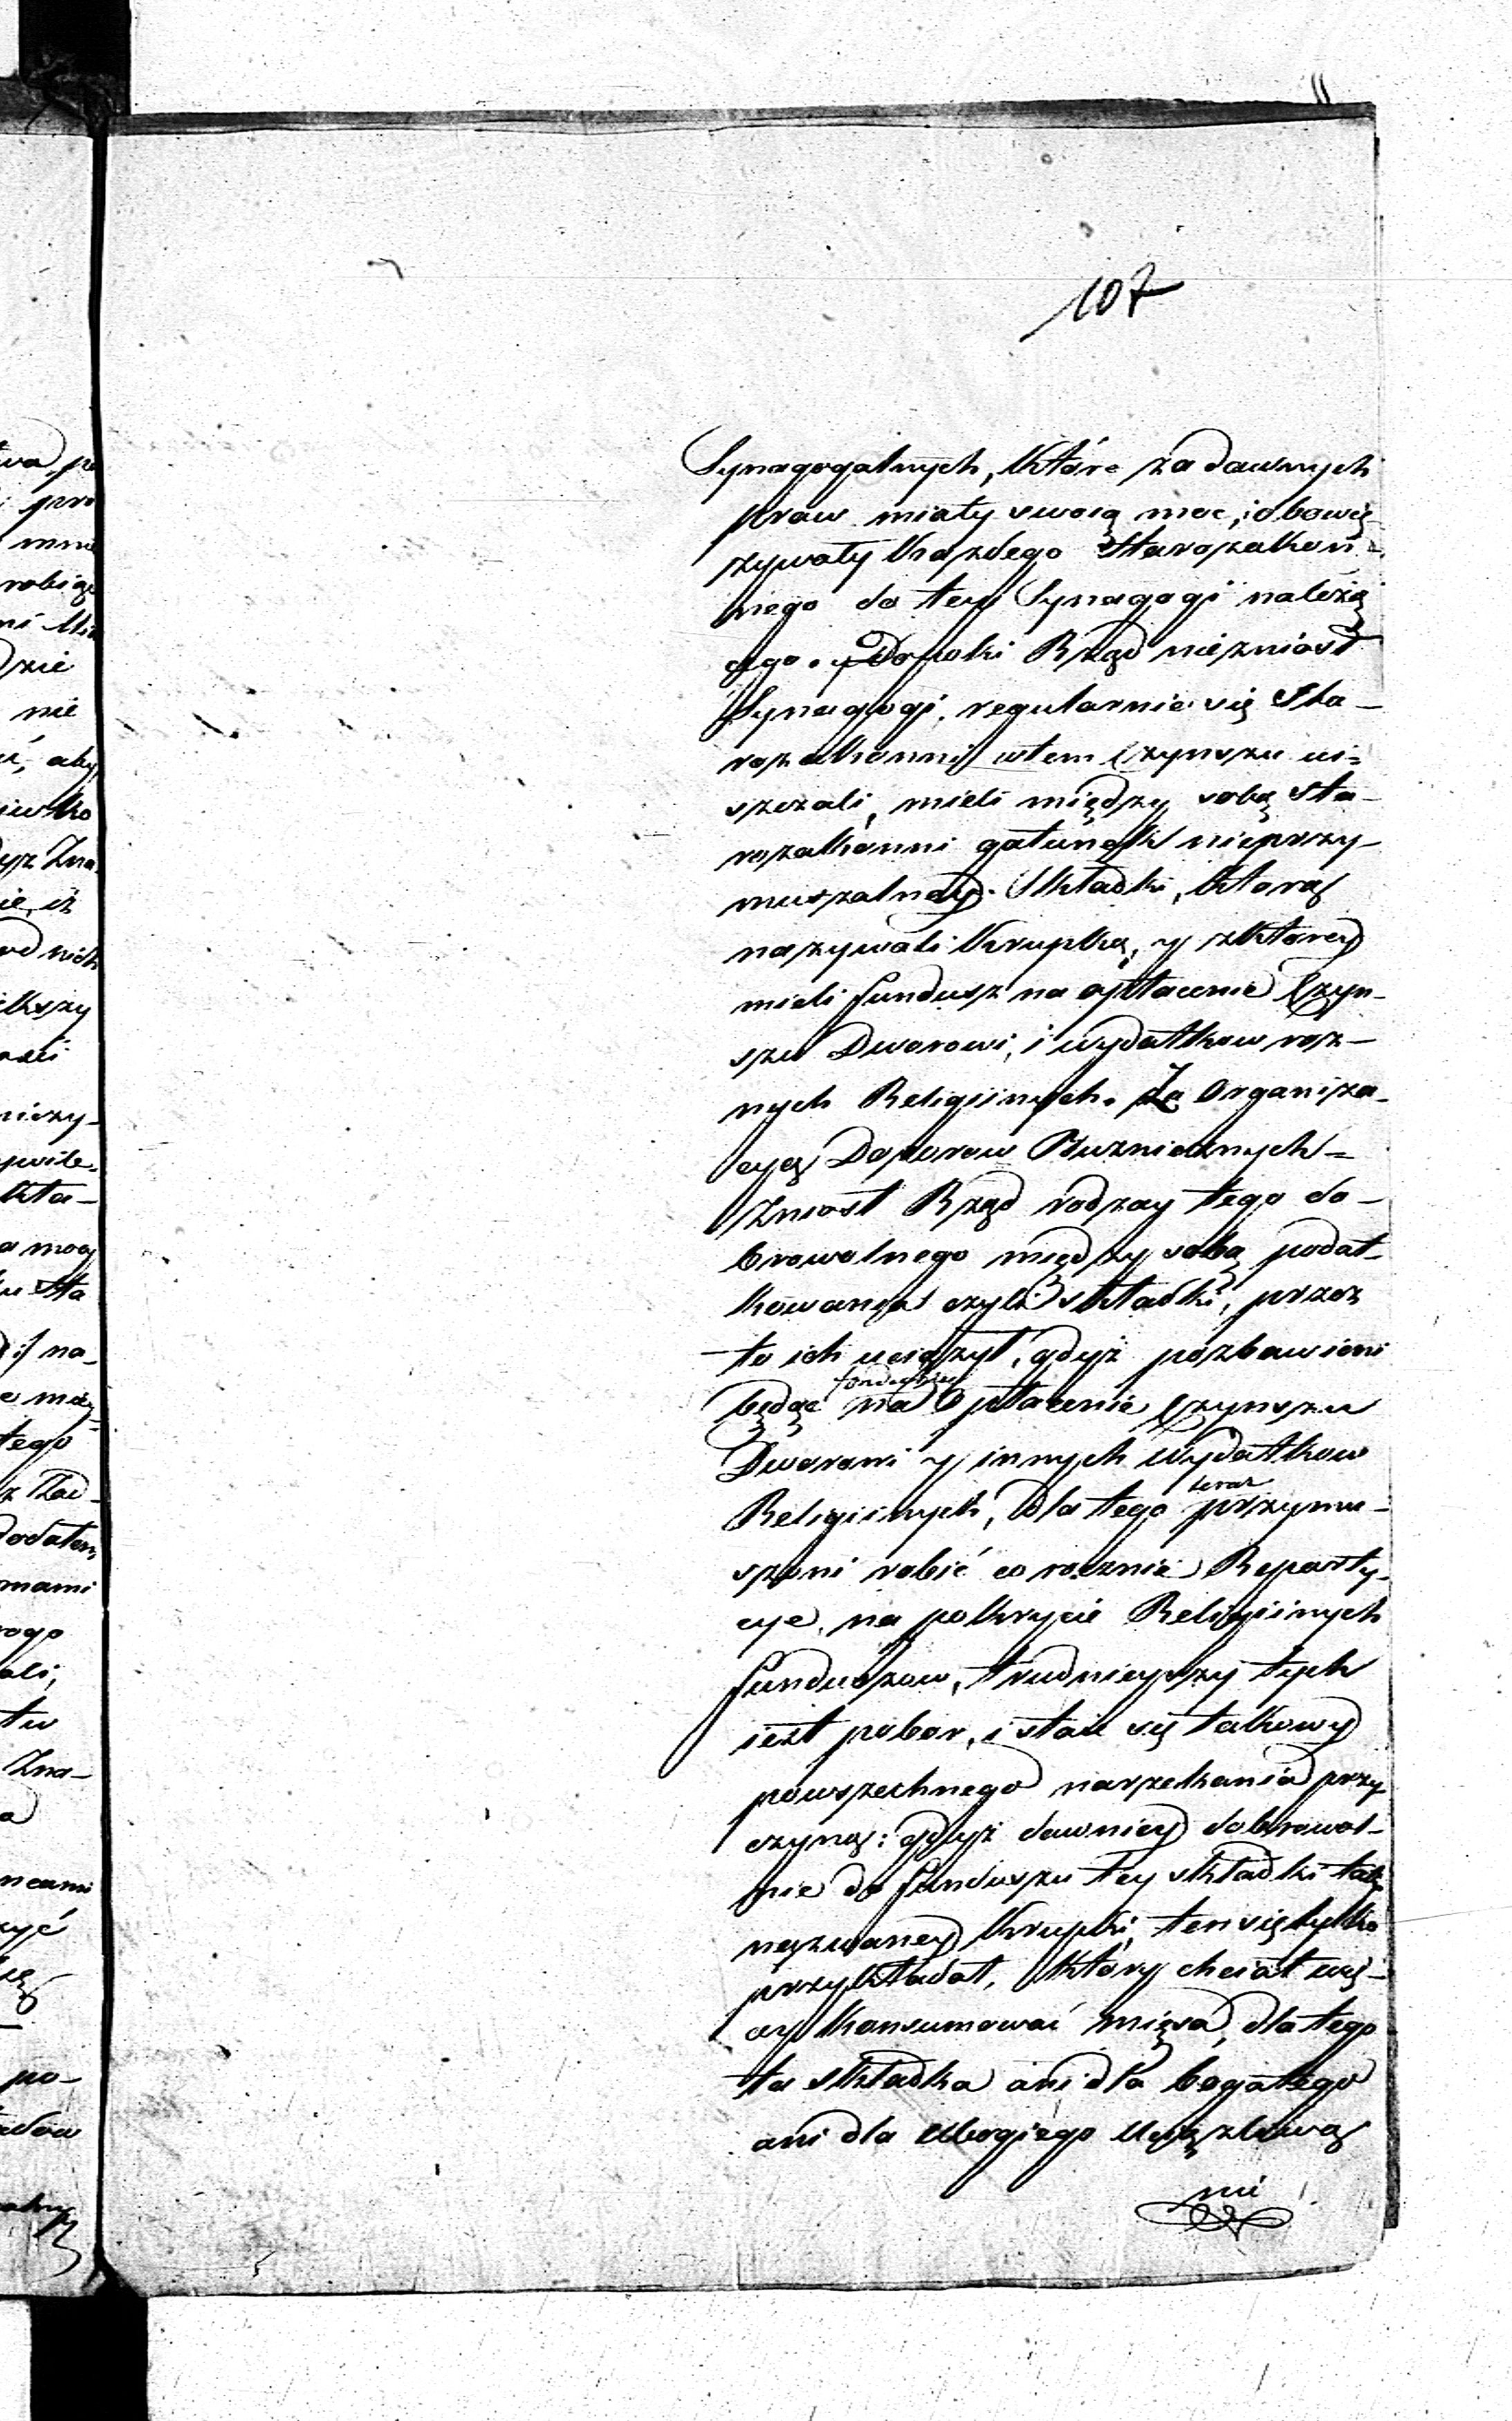 107
Synagogalnych, które za dawnych
praw miały swoią moc, i obowię-
zywały każdego Starozakon-
nego do tey Synagogi należą
cego. y Dopoki Rząd niezniosł
Synagogi, regularnie się Sta-
rozakonni wtem Czynszu ui=
szczali, mieli między sobą Sta-
rozakonni gatunek nieprzy-
muszalney Składki, ktorą
nazywali Krupką, y zktorey
mieli fundusz na opłacenie Czyn-
szu Dworowi, i wydatkow roz-
nych Religiinych. Za Organiza-
cyą Dozorow Bużnicznych=
Zniosł Rząd rodzay tego do-
browolnego między sobą podat-
kowania czyli składki, przez
to ich uciążył, gdyż pozbawieni
będąc funduszu na Opłacenie Czynszu
Dworowi y innych Wydatkow
Religiinych, dla tego teraz przymu-
szeni robić co rocznie Reparty-
cye, na pokrycie Religiinych
funduszow, trudnieyszy tych
iest pobor, i staie się takowy
powszechnego narzekania przy
czyną: gdyż dawniey dobrowol-
nie do funduszu tey składki tak
nazwaney Krupki, ten się tylko
przykładał, który chciał wię-
cey konsumować mięsa, dla tego
ta składka ani dla bogatego
ani dla Ubogiego Uciążliwą
nie